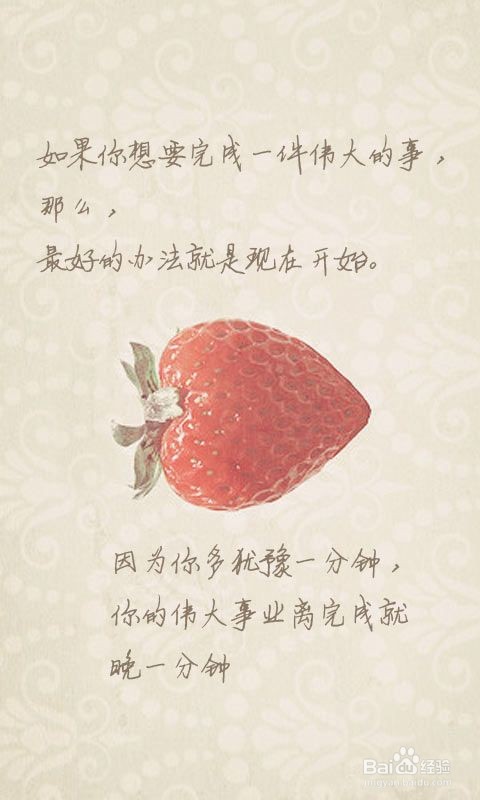 如果你想要完成一件伟大的事，
那么，
最好的办法就是现在开始。
因为你多犹豫一分钟，
你的伟大事业离完成就
晚一分钟
Bai经验
jingyan.baidu.com